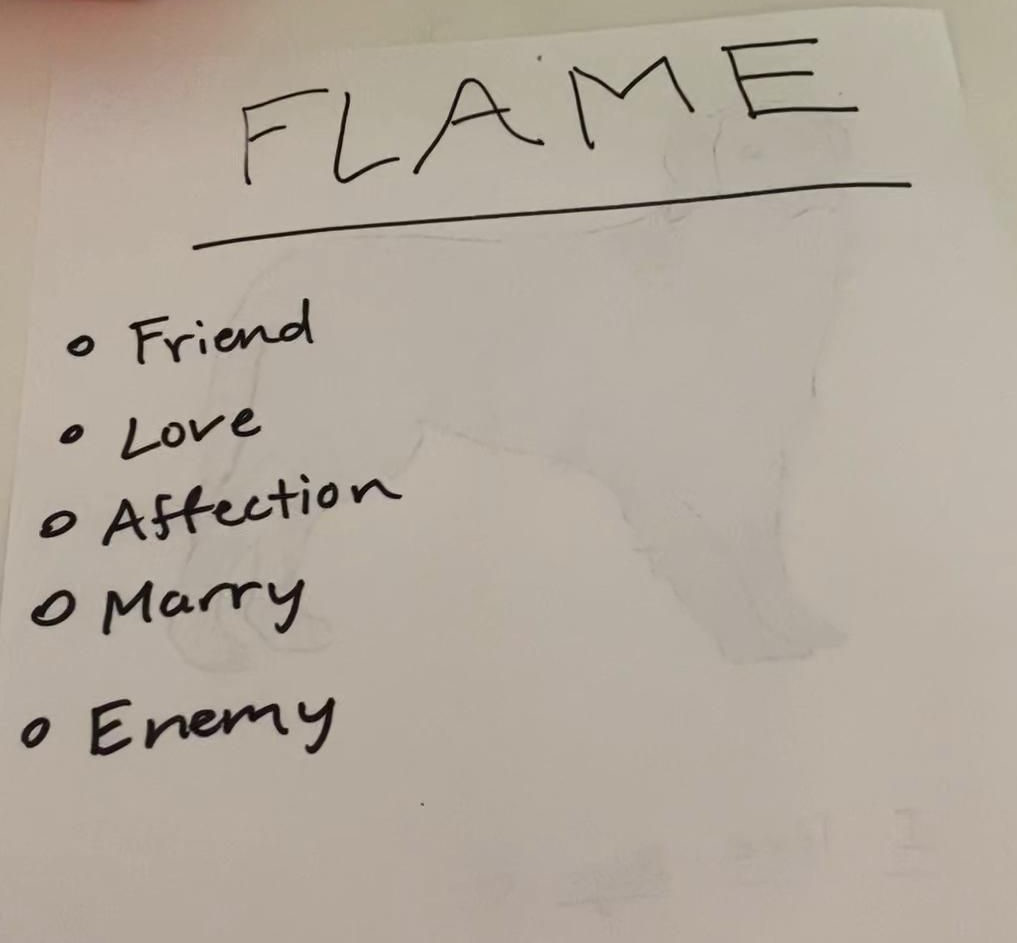 FLAME
Friend
Love
Affection
Marry
Enemy